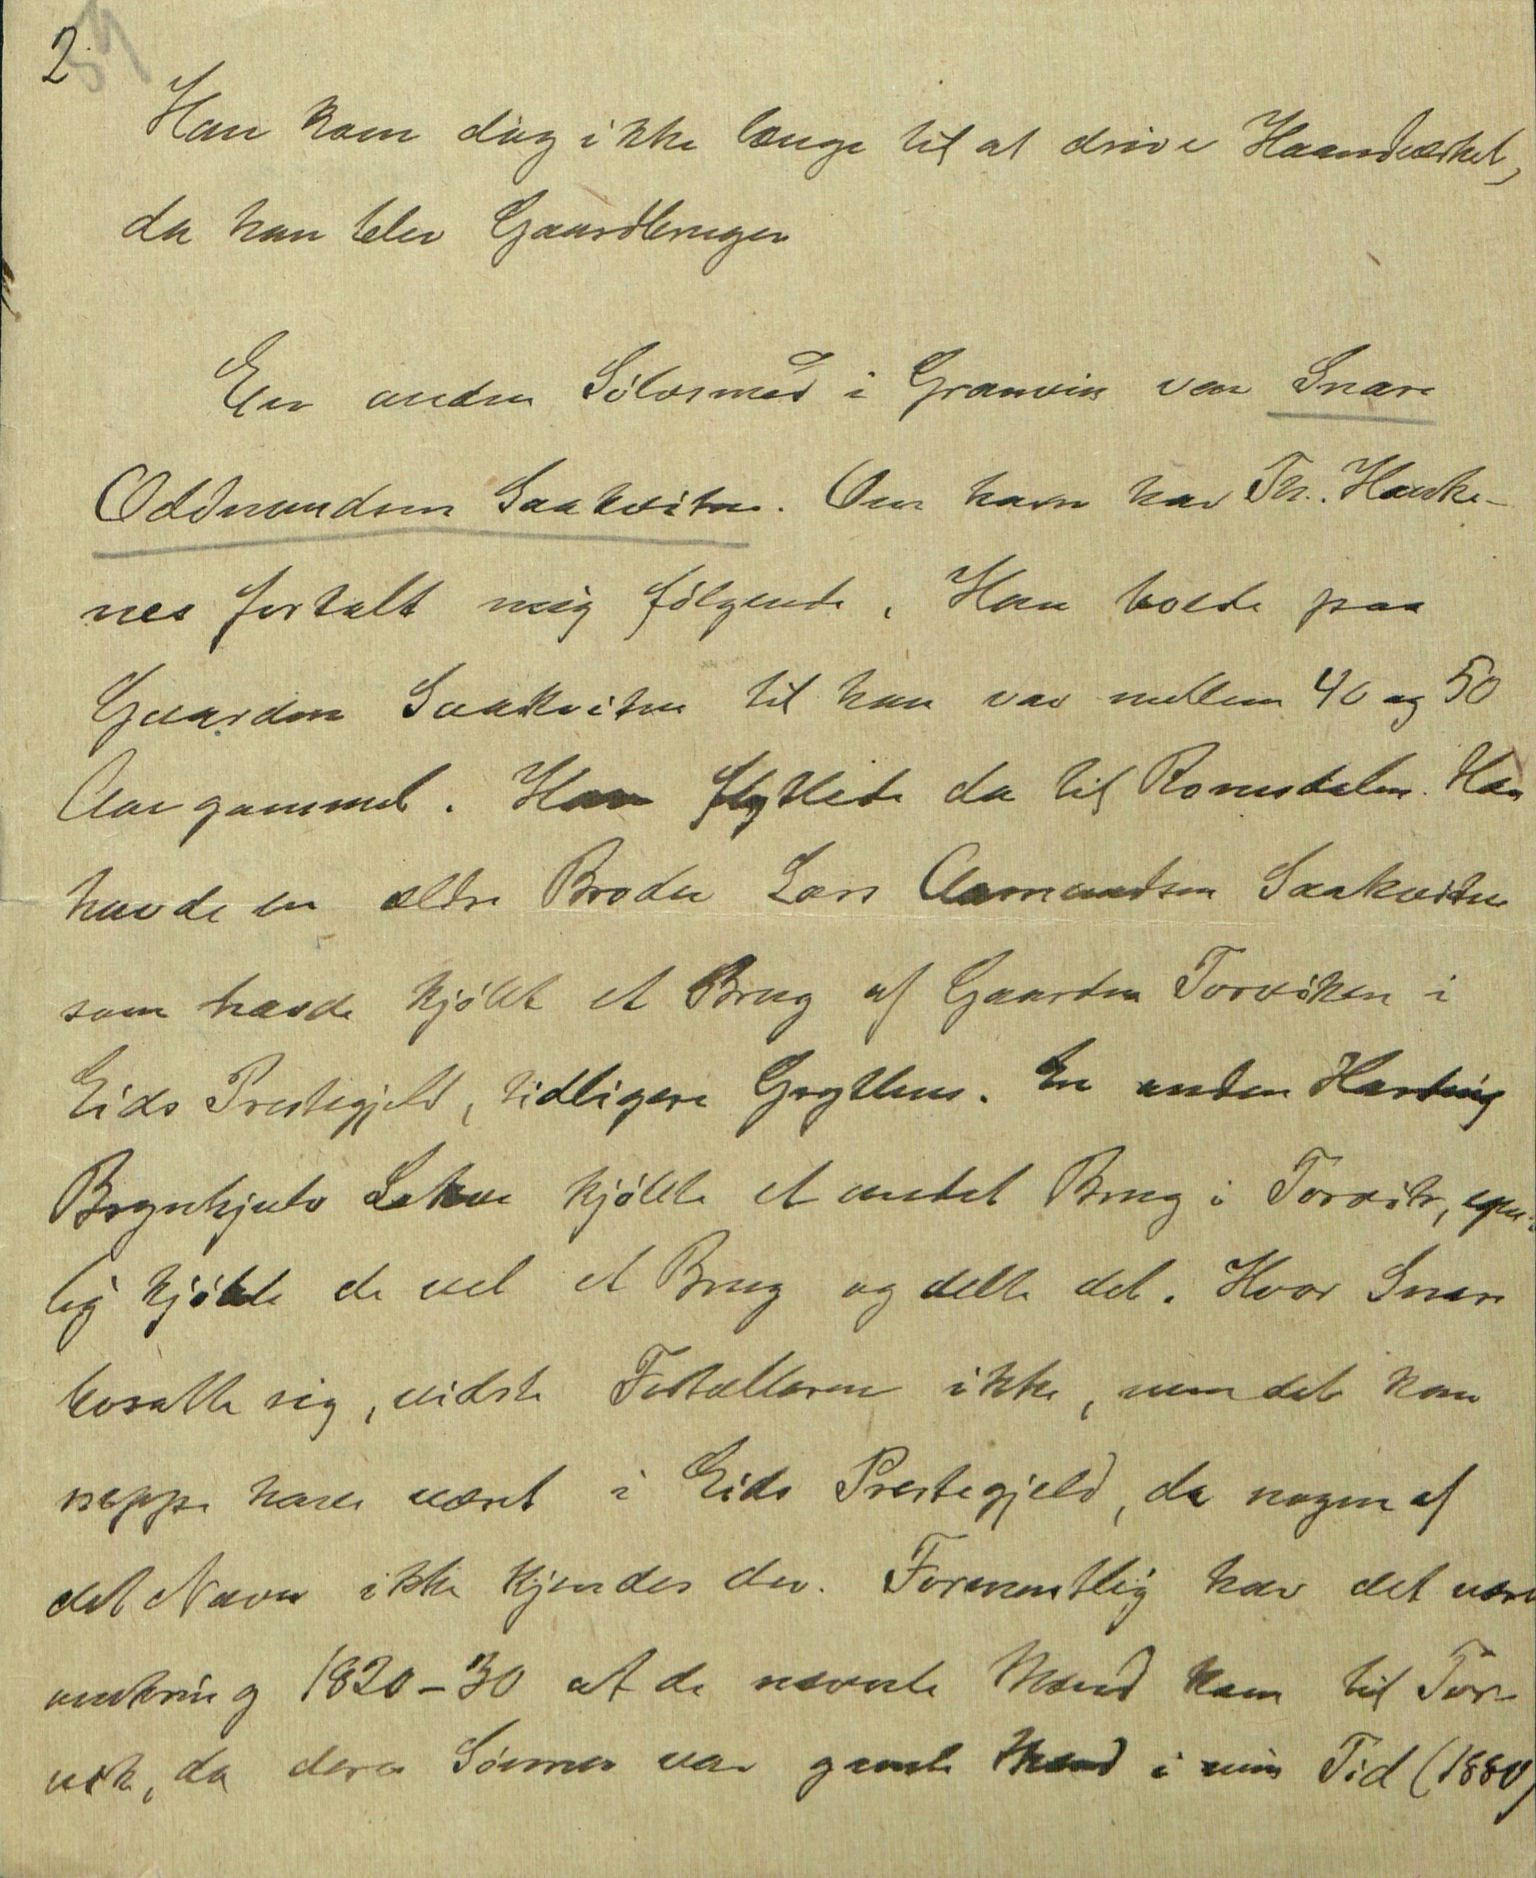 2.
Han kom dog ikke længe til at drive Haandværket,
da han blev Gaardbruger
En anden Sølvsmed i Granvin var Snare
Oddmundsen Saakvitne. Om ham har Th. Hauke-
nes fortalt mig følgende. Han boede paa
Gaarden Saakvitne til han var mellem 40 og 50
Aar gammel. Han flyttede da til Romsdalen. Han
havde en ældre Broder Lars Aamundsen Saakvitne
som havde kjøbt et Brug af Gaarden Torviken i
Eids Prestegjeld, tidligere Gryttens. En anden Harding
Brynhjulv Lekve kjøbte et andet Brug i Torvik, egent-
lig kjøbte de vel et Brug og delte det. Hvor Snare
bosatte sig, vidste Fortælleren ikke, men det kan
neppe have været i Eids Prestegjeld, da nogen af
det Navn ikke kjendes der. Formentlig har det være
omkring 1820-30 at de nævnte Mænd kom til Tor-
vik, da deres Sønner var gamle Mænd i min Tid (1880)